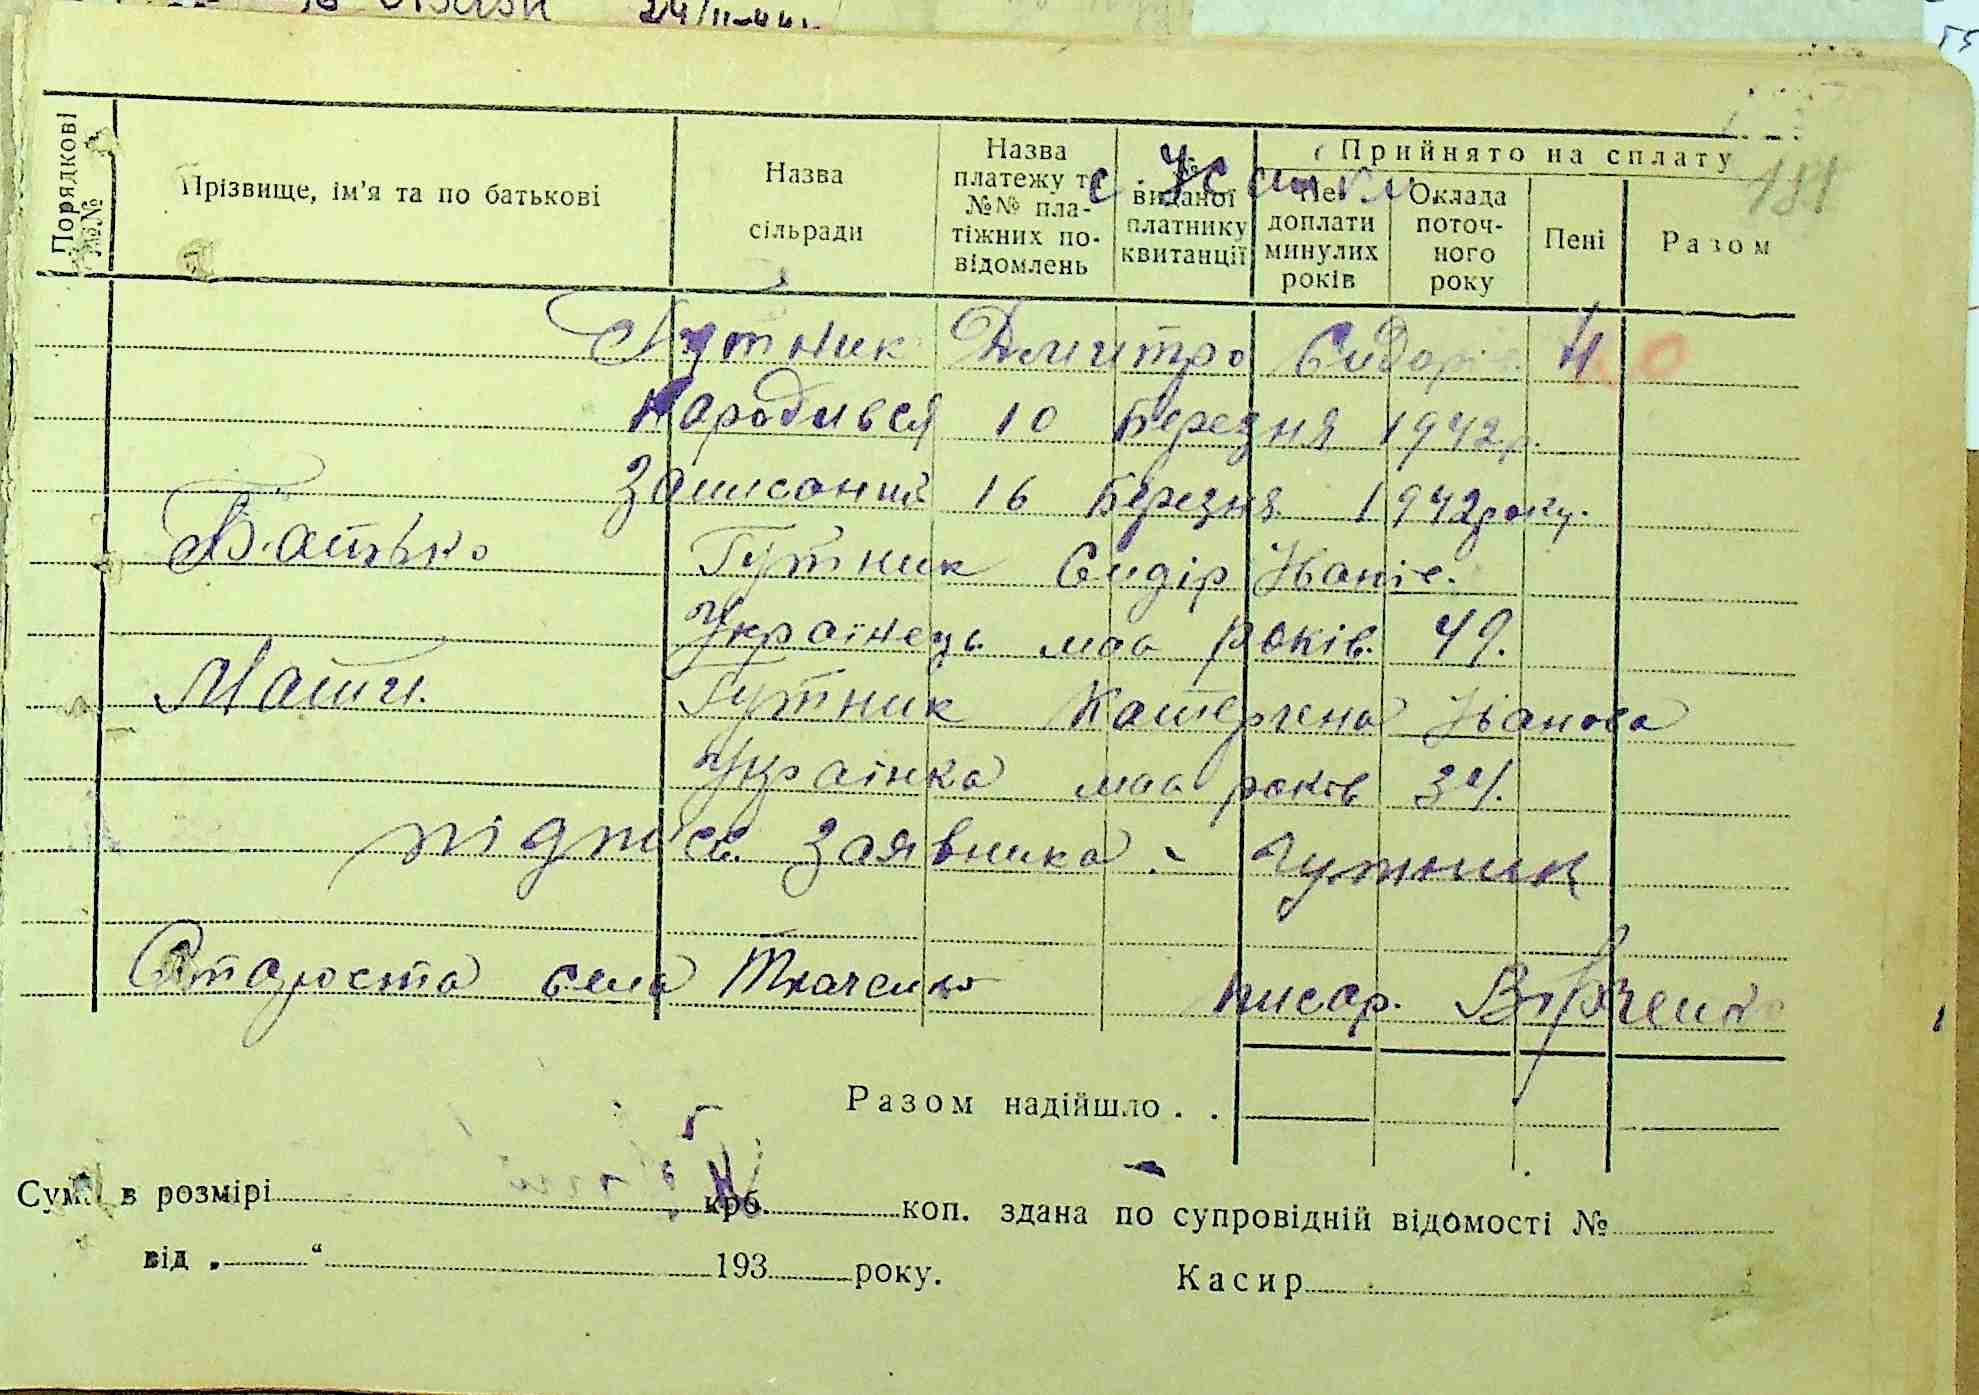 24/II-44г.
Порядкові №№
Прізвище, ім'я та по батькові
Назва сільради
Назва платежу та №№ пла-
тіжних по-
відомлень
№ виданої платнику квитанції
Прийнято на сплату
Недоплати минулих років
Оклада поточ-
ного року
Пені
Разом
Гутник Дмитро Сидорів. 4
Народився 10 Березня 1942р.
Записаний 16 Березня 1942року.
Батько Гутник Сидір Іваніс.
Українець маа років. 49.
Мати. Гутник Катерена Іванова
Українка маа років 34.
підпись заявника - Гутник
Староста села Ткаченко писар.
Разом надійшло . .
Сума в розмірі крб. коп. здана по супровідній відомості №
від „ “ 193 року. Касир